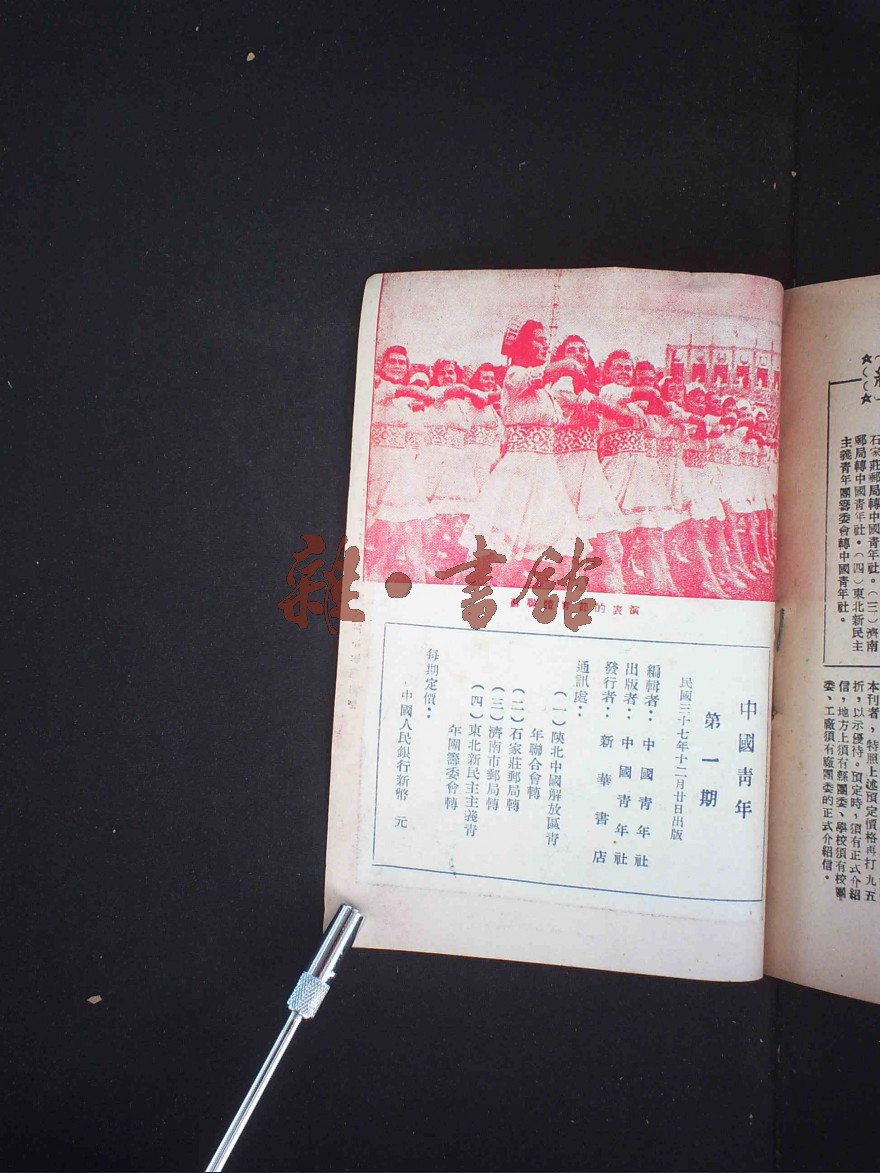 的表演
雜·書館
中國青年
第一期
民國三十七年十二月廿日出版
編輯者：中國青年社
出版者：中國青年社
發行者：新華書店
通訊處：
（一）陝北中國解放區青
年聯合會轉
（二）石家莊郵局轉
（三）濟南市郵局轉
（四）東北新民主主義青
年團籌委會轉
每期定價：
中國人民銀行新幣　元
石家莊郵局轉中國青年社。（三）濟南
郵局轉中國青年社。（四）東北新民主
主義青年團籌委會轉中國青年社。
本刊者，特照上述預定價格再打九五
折，以示優待。預定時，須有正式介紹
信，地方上須有縣團委、學校須有校團
委、工廠須有廠團委的正式介紹信。